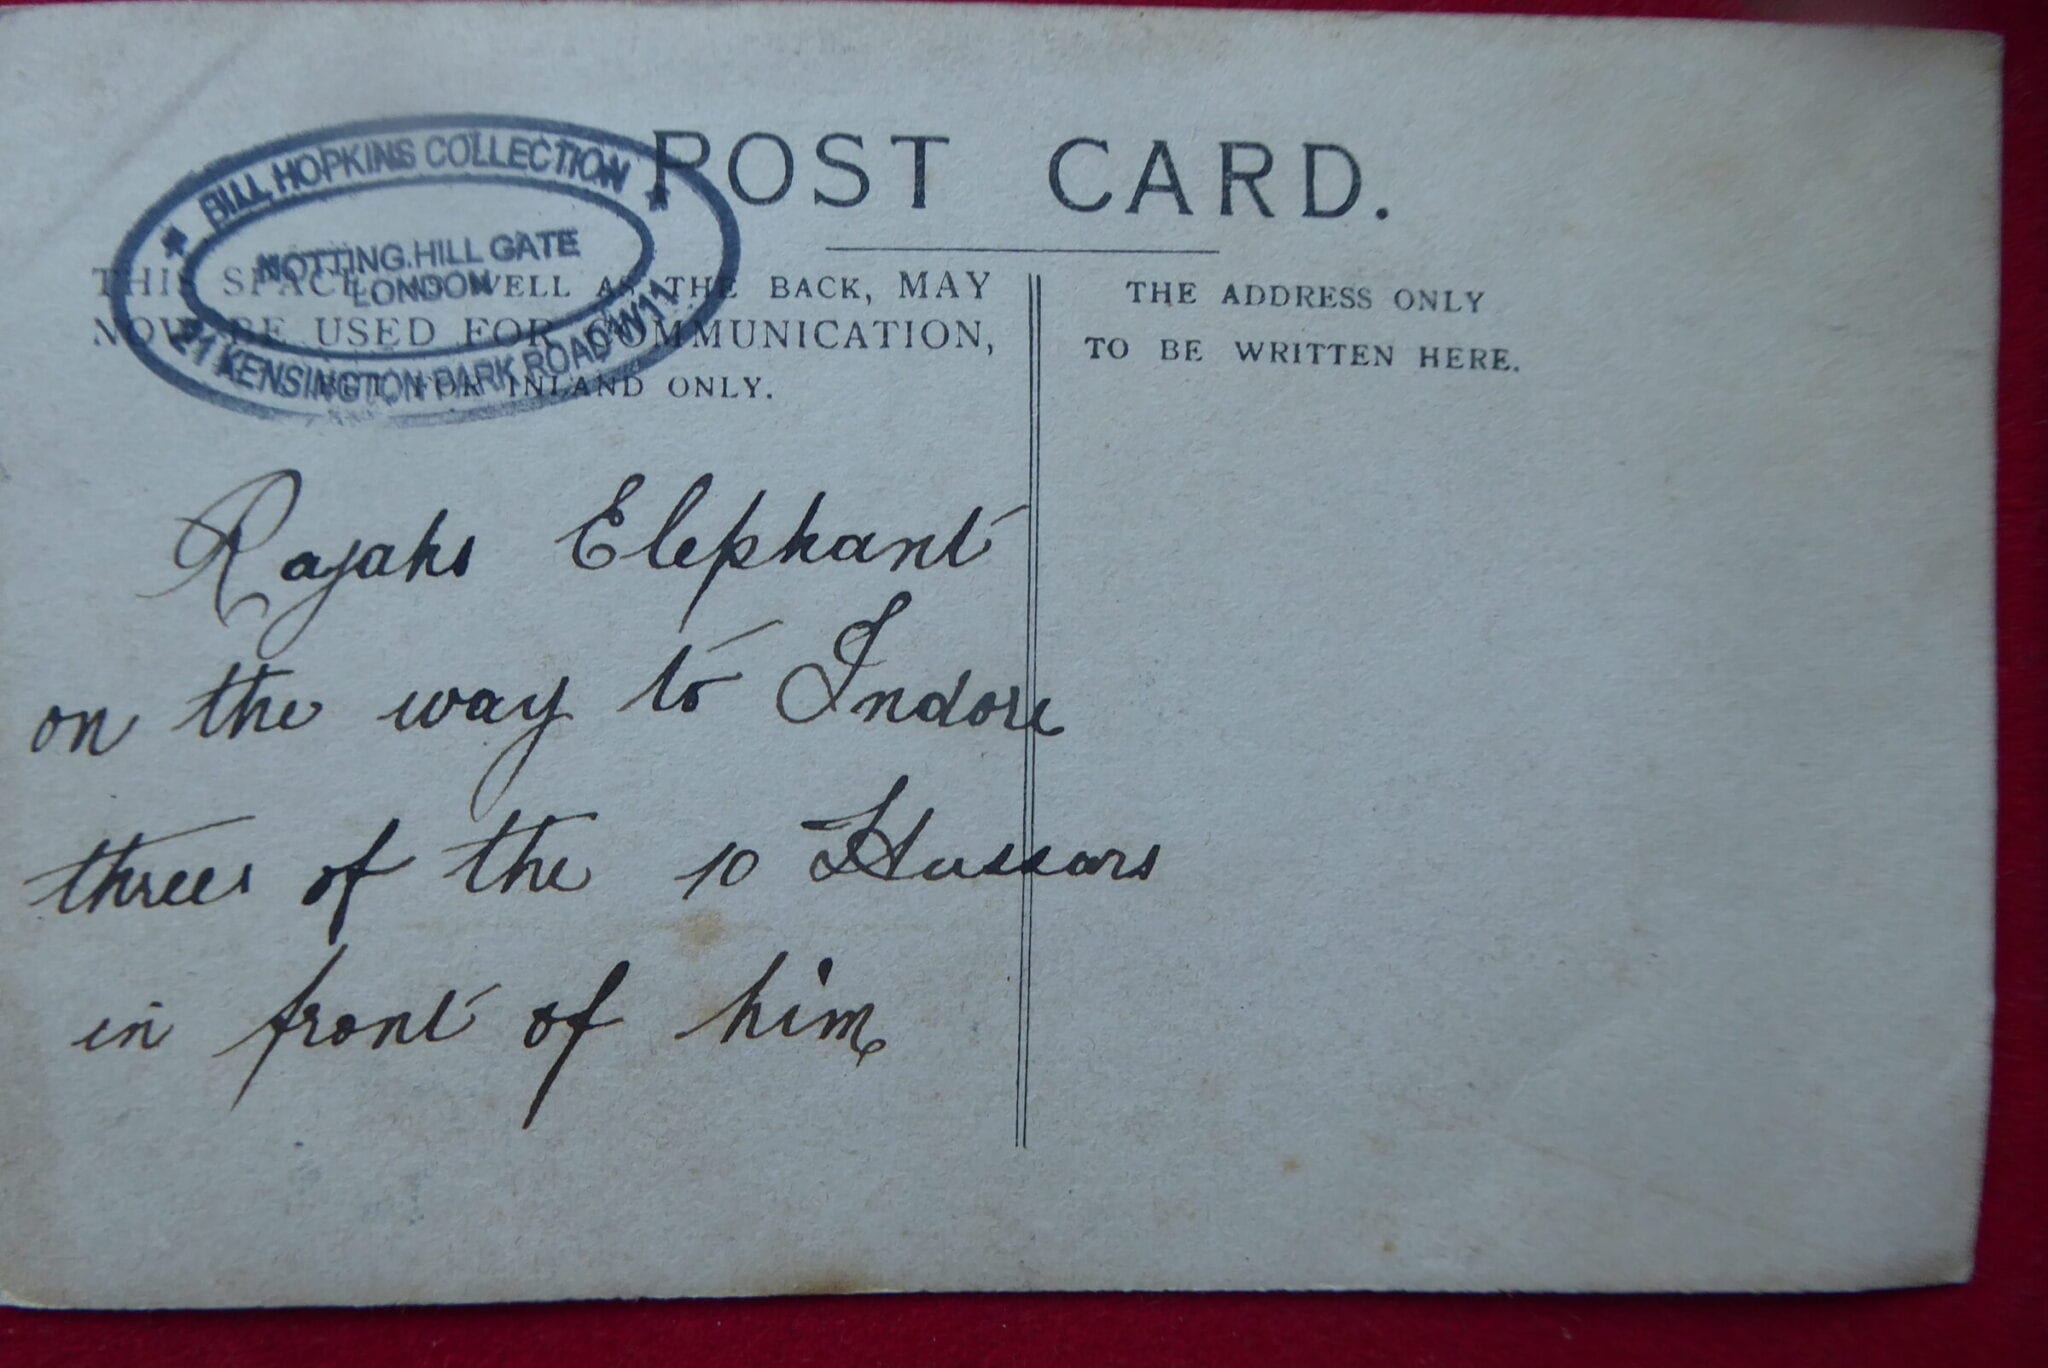 POST CARD.
★ BILL HOPKINS COLLECTION ★
NOTTING HILL GATE
LONDON
21 KENSINGTON PARK ROAD W11
THIS SPACE, AS WELL AS THE BACK, MAY
NOW BE USED FOR COMMUNICATION,
BUT FOR INLAND ONLY.
THE ADDRESS ONLY
TO BE WRITTEN HERE.
Rajahs Elephant
on the way to Indore
threes of the 10 Hussars
in front of him